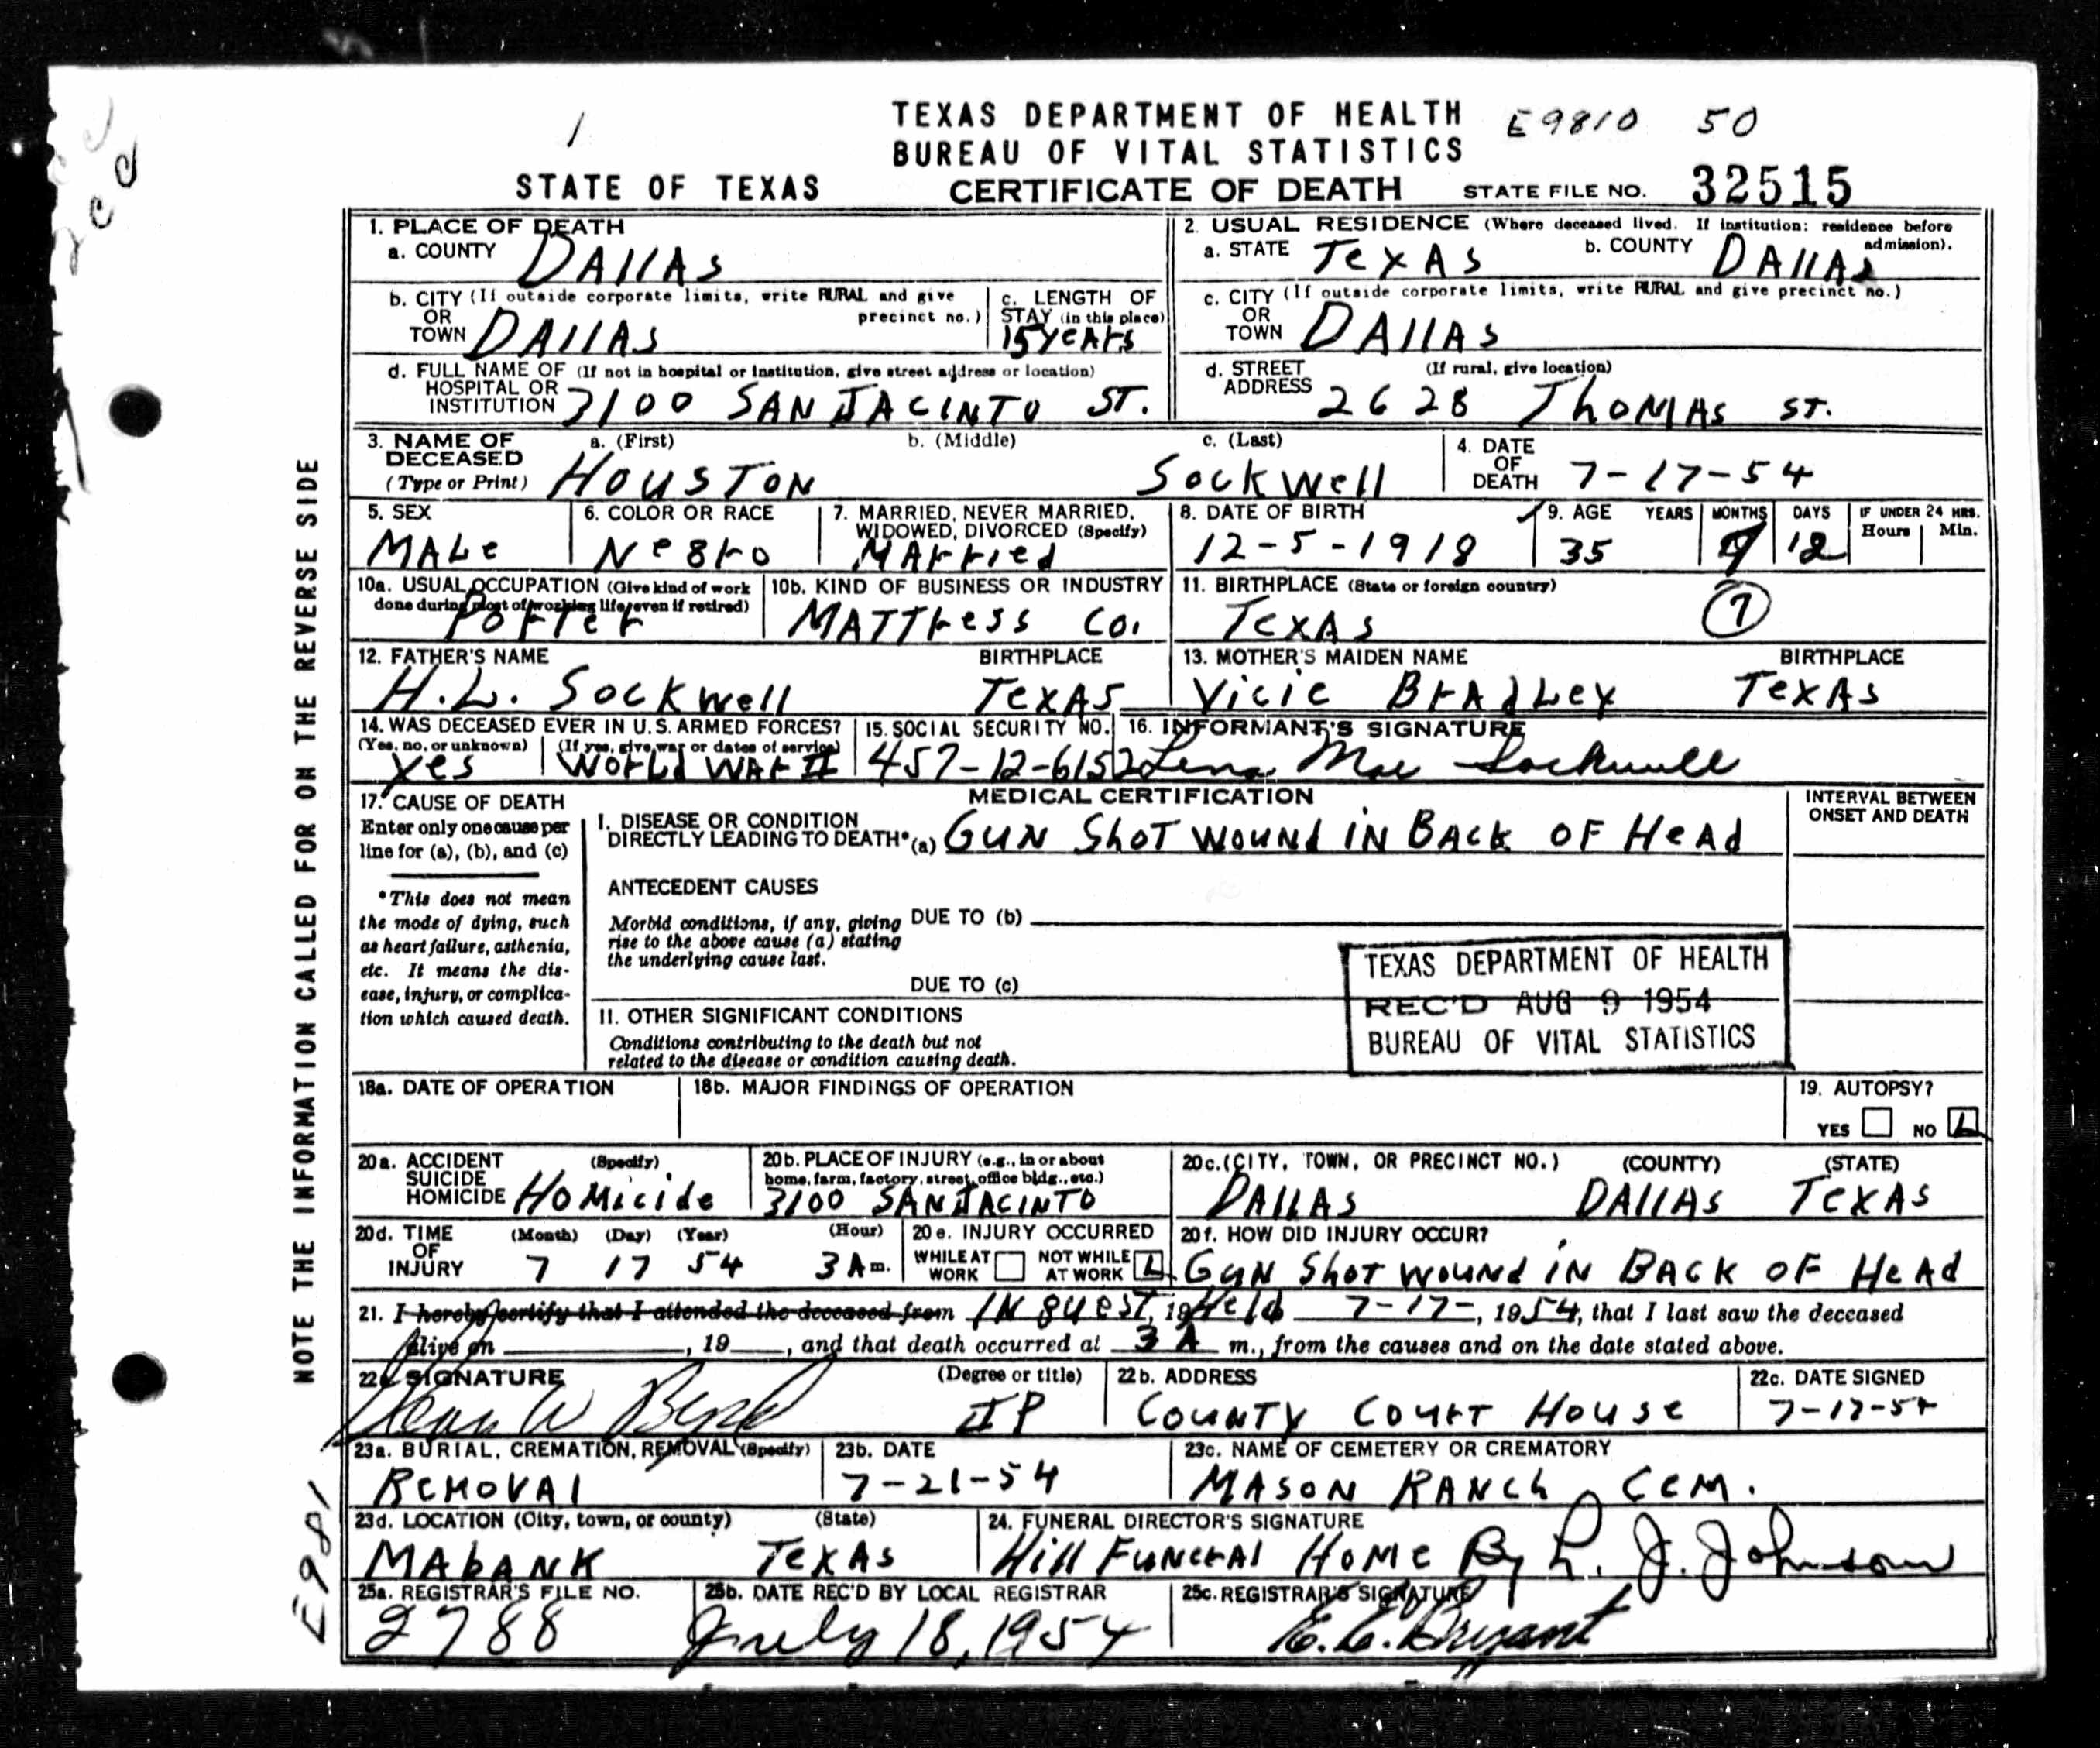 E9810 50
TEXAS DEPARTMENT OF HEALTH
BUREAU OF VITAL STATISTICS
STATE OF TEXAS CERTIFICATE OF DEATH STATE FILE NO. 32515
1. PLACE OF DEATH
a. COUNTY DALLAS
2. USUAL RESIDENCE (Where deceased lived. If institution: residence before admission).
a. STATE TEXAS b. COUNTY DALLAS
b. CITY (If outside corporate limits, write RURAL and give precinct no.)
OR
TOWN DALLAS
c. LENGTH OF
STAY (in this place)
15 YEARS
c. CITY (If outside corporate limits, write RURAL and give precinct no.)
OR
TOWN DALLAS
d. FULL NAME OF (If not in hospital or institution, give street address or location)
HOSPITAL OR
INSTITUTION 3100 SAN JACINTO ST.
d. STREET (If rural, give location)
ADDRESS 2628 THOMAS ST.
3. NAME OF a. (First) b. (Middle) c. (Last)
DECEASED
(Type or Print) HOUSTON SOCKWELL
4. DATE
OF
DEATH 7-17-54
5. SEX
MALE
6. COLOR OR RACE
NEGRO
7. MARRIED, NEVER MARRIED,
WIDOWED, DIVORCED (Specify)
MARRIED
8. DATE OF BIRTH
12-5-1918
9. AGE YEARS MONTHS DAYS IF UNDER 24 HRS.
Hours Min.
35 12
7
10a. USUAL OCCUPATION (Give kind of work
done during most of working life, even if retired)
PORTER
10b. KIND OF BUSINESS OR INDUSTRY
MATTRESS CO.
11. BIRTHPLACE (State or foreign country)
TEXAS
12. FATHER'S NAME BIRTHPLACE
H.L. SOCKWELL TEXAS
13. MOTHER'S MAIDEN NAME BIRTHPLACE
VICIE BRADLEY TEXAS
14. WAS DECEASED EVER IN U.S. ARMED FORCES?
(Yes, no, or unknown) (If yes, give war or dates of service)
YES WORLD WAR II
15. SOCIAL SECURITY NO.
457-12-6152
16. INFORMANT'S SIGNATURE
Lena Mae Sockwell
17. CAUSE OF DEATH
Enter only one cause per
line for (a), (b), and (c)
*This does not mean
the mode of dying, such
as heart failure, asthenia,
etc. It means the dis-
ease, injury, or complica-
tion which caused death.
MEDICAL CERTIFICATION
I. DISEASE OR CONDITION
DIRECTLY LEADING TO DEATH* (a) GUN SHOT WOUND IN BACK OF HEAD
ANTECEDENT CAUSES
Morbid conditions, if any, giving DUE TO (b)
rise to the above cause (a) stating
the underlying cause last.
DUE TO (c)
II. OTHER SIGNIFICANT CONDITIONS
Conditions contributing to the death but not
related to the disease or condition causing death.
INTERVAL BETWEEN
ONSET AND DEATH
TEXAS DEPARTMENT OF HEALTH
REC'D AUG 9 1954
BUREAU OF VITAL STATISTICS
18a. DATE OF OPERATION
18b. MAJOR FINDINGS OF OPERATION
19. AUTOPSY?
YES NO
20a. ACCIDENT (Specify)
SUICIDE
HOMICIDE HOMICIDE
20b. PLACE OF INJURY (e.g., in or about
home, farm, factory, street, office bldg., etc.)
3100 SAN JACINTO
20c. (CITY, TOWN, OR PRECINCT NO.) (COUNTY) (STATE)
DALLAS DALLAS TEXAS
20d. TIME (Month) (Day) (Year) (Hour)
OF
INJURY 7 17 54 3 A m.
20e. INJURY OCCURRED
WHILE AT
WORK
NOT WHILE
AT WORK
20f. HOW DID INJURY OCCUR?
GUN SHOT WOUND IN BACK OF HEAD
21. I hereby certify that I attended the deceased from INQUEST, 19 HELD 7-17-, 1954, that I last saw the deceased
alive on , 19 , and that death occurred at 3 A m., from the causes and on the date stated above.
22a. SIGNATURE (Degree or title)
W Byrd JP
22b. ADDRESS
COUNTY COURT HOUSE
22c. DATE SIGNED
7-17-54
23a. BURIAL, CREMATION, REMOVAL (Specify)
REMOVAL
23b. DATE
7-21-54
23c. NAME OF CEMETERY OR CREMATORY
MASON RANCH CEM.
23d. LOCATION (City, town, or county) (State)
MABANK TEXAS
24. FUNERAL DIRECTOR'S SIGNATURE
HILL FUNERAL HOME By L. J. Johnson
25a. REGISTRAR'S FILE NO.
2788
25b. DATE REC'D BY LOCAL REGISTRAR
July 18, 1954
25c. REGISTRAR'S SIGNATURE
E. E. Bryant
NOTE THE INFORMATION CALLED FOR ON THE REVERSE SIDE
E981